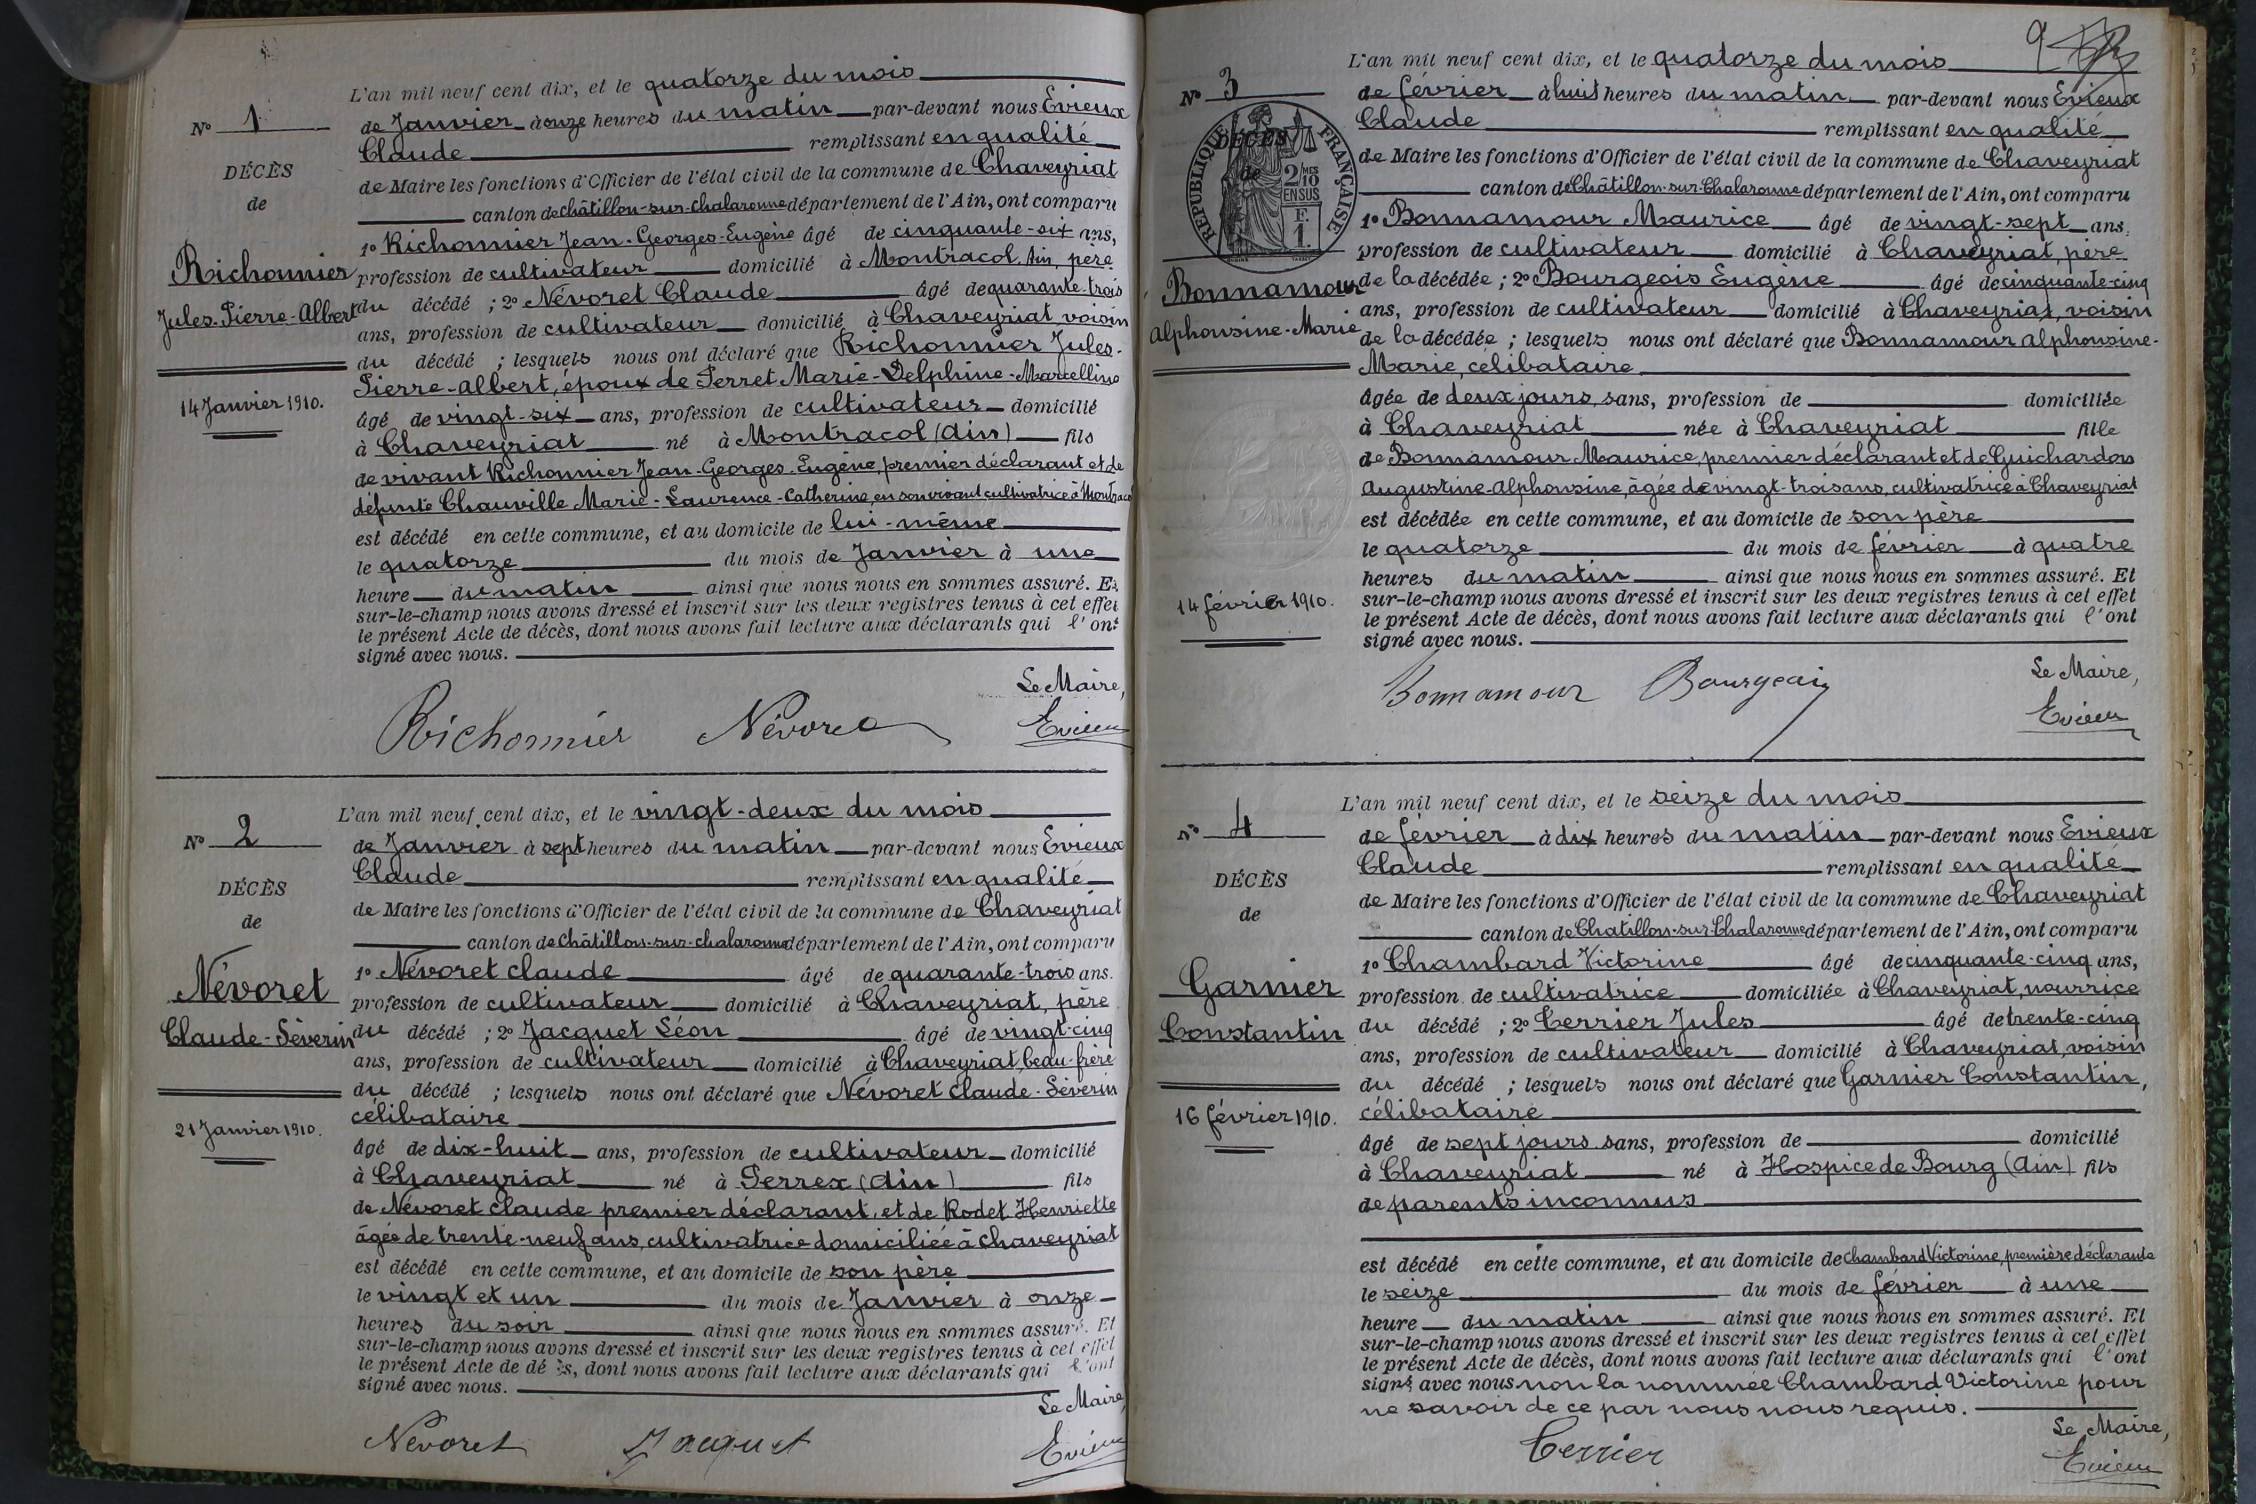 L'an mil neuf cent dix, et le quatorze du mois
N° 1
de Janvier à onze heures du matin par-devant nous Evieux
Claude remplissant en qualité
DÉCÈS
de Maire les fonctions d'Officier de l'état civil de la commune de Chaveyriat
de
canton de Châtillon-sur-Chalaronne département de l'Ain, ont comparu
1° Richonnier Jean-Georges-Eugène âgé de cinquante-six ans,
Richonnier
profession de cultivateur domicilié à Montracol, Ain, père
Jules-Pierre-Albert
du décédé ; 2° Névoret Claude âgé de quarante-trois
ans, profession de cultivateur domicilié à Chaveyriat voisin
du décédé ; lesquels nous ont déclaré que Richonnier Jules-
Pierre-Albert, époux de Perret Marie-Delphine-Marcelline
14 Janvier 1910.
âgé de vingt-six ans, profession de cultivateur domicilié
à Chaveyriat né à Montracol (Ain) fils
de vivant Richonnier Jean-Georges-Eugène, premier déclarant et de
défunte Chauville Marie-Laurence-Catherine, en son vivant cultivatrice à Montracol
est décédé en cette commune, et au domicile de lui-même
le quatorze du mois de Janvier à une
heure du matin ainsi que nous nous en sommes assuré. Et
sur-le-champ nous avons dressé et inscrit sur les deux registres tenus à cet effet
le présent Acte de décès, dont nous avons fait lecture aux déclarants qui l'ont
signé avec nous.
Le Maire,
Richonnier Névoret Evieux
L'an mil neuf cent dix, et le vingt-deux du mois
N° 2
de Janvier à sept heures du matin par-devant nous Evieux
Claude remplissant en qualité
DÉCÈS
de Maire les fonctions d'Officier de l'état civil de la commune de Chaveyriat
de
canton de Châtillon-sur-Chalaronne département de l'Ain, ont comparu
1° Névoret Claude âgé de quarante-trois ans.
Névoret
profession de cultivateur domicilié à Chaveyriat, père
Claude-Séverin
du décédé ; 2° Jacquet Léon âgé de vingt-cinq
ans, profession de cultivateur domicilié à Chaveyriat, beau-frère
du décédé ; lesquels nous ont déclaré que Névoret Claude-Séverin
célibataire
21 Janvier 1910.
âgé de dix-huit ans, profession de cultivateur domicilié
à Chaveyriat né à Perrex (Ain) fils
de Névoret Claude premier déclarant, et de Rodet Henriette
âgée de trente-neuf ans, cultivatrice domiciliée à Chaveyriat
est décédé en cette commune, et au domicile de son père
le vingt et un du mois de Janvier à onze
heures du soir ainsi que nous nous en sommes assuré. Et
sur-le-champ nous avons dressé et inscrit sur les deux registres tenus à cet effet
le présent Acte de décès, dont nous avons fait lecture aux déclarants qui l'ont
signé avec nous.
Le Maire,
Névoret Jacquet Evieux
9
L'an mil neuf cent dix, et le quatorze du mois
N° 3
de février à huit heures du matin par-devant nous Evieux
Claude remplissant en qualité
RÉPUBLIQUE FRANÇAISE
2/10 MES
EN SUS
F.
1.
DÉCÈS
de Maire les fonctions d'Officier de l'état civil de la commune de Chaveyriat
de
canton de Châtillon-sur-Chalaronne département de l'Ain, ont comparu
1° Bonnamour Maurice âgé de vingt-sept ans,
profession de cultivateur domicilié à Chaveyriat, père
Bonnamour
de la décédée ; 2° Bourgeois Eugène âgé de cinquante-cinq
Alphonsine-Marie
ans, profession de cultivateur domicilié à Chaveyriat, voisin
de la décédée ; lesquels nous ont déclaré que Bonnamour Alphonsine-
Marie, célibataire
âgée de deux jours, sans, profession de domiciliée
à Chaveyriat née à Chaveyriat fille
de Bonnamour Maurice, premier déclarant et de Guichardon
Augustine-Alphonsine, âgée de vingt-trois ans, cultivatrice à Chaveyriat
est décédée en cette commune, et au domicile de son père
le quatorze du mois de février à quatre
heures du matin ainsi que nous nous en sommes assuré. Et
14 février 1910.
sur-le-champ nous avons dressé et inscrit sur les deux registres tenus à cet effet
le présent Acte de décès, dont nous avons fait lecture aux déclarants qui l'ont
signé avec nous.
Le Maire,
Bonnamour Bourgeois Evieux
L'an mil neuf cent dix, et le seize du mois
N° 4
de février à dix heures du matin par-devant nous Evieux
Claude remplissant en qualité
DÉCÈS
de Maire les fonctions d'Officier de l'état civil de la commune de Chaveyriat
de
canton de Chatillon-sur-Chalaronne département de l'Ain, ont comparu
1° Chambard Victorine âgé de cinquante-cinq ans,
Garnier
profession de cultivatrice domiciliée à Chaveyriat, nourrice
Constantin
du décédé ; 2° Terrier Jules âgé de trente-cinq
ans, profession de cultivateur domicilié à Chaveyriat, voisin
du décédé ; lesquels nous ont déclaré que Garnier Constantin,
16 février 1910.
célibataire
âgé de sept jours sans, profession de domicilié
à Chaveyriat né à Hospice de Bourg (Ain) fils
de parents inconnus
est décédé en cette commune, et au domicile de Chambard Victorine, première déclarante
le seize du mois de février à une
heure du matin ainsi que nous nous en sommes assuré. Et
sur-le-champ nous avons dressé et inscrit sur les deux registres tenus à cet effet
le présent Acte de décès, dont nous avons fait lecture aux déclarants qui l'ont
signé avec nous non la nommée Chambard Victorine pour
ne savoir de ce par nous nous requis.
Le Maire,
Terrier Evieux